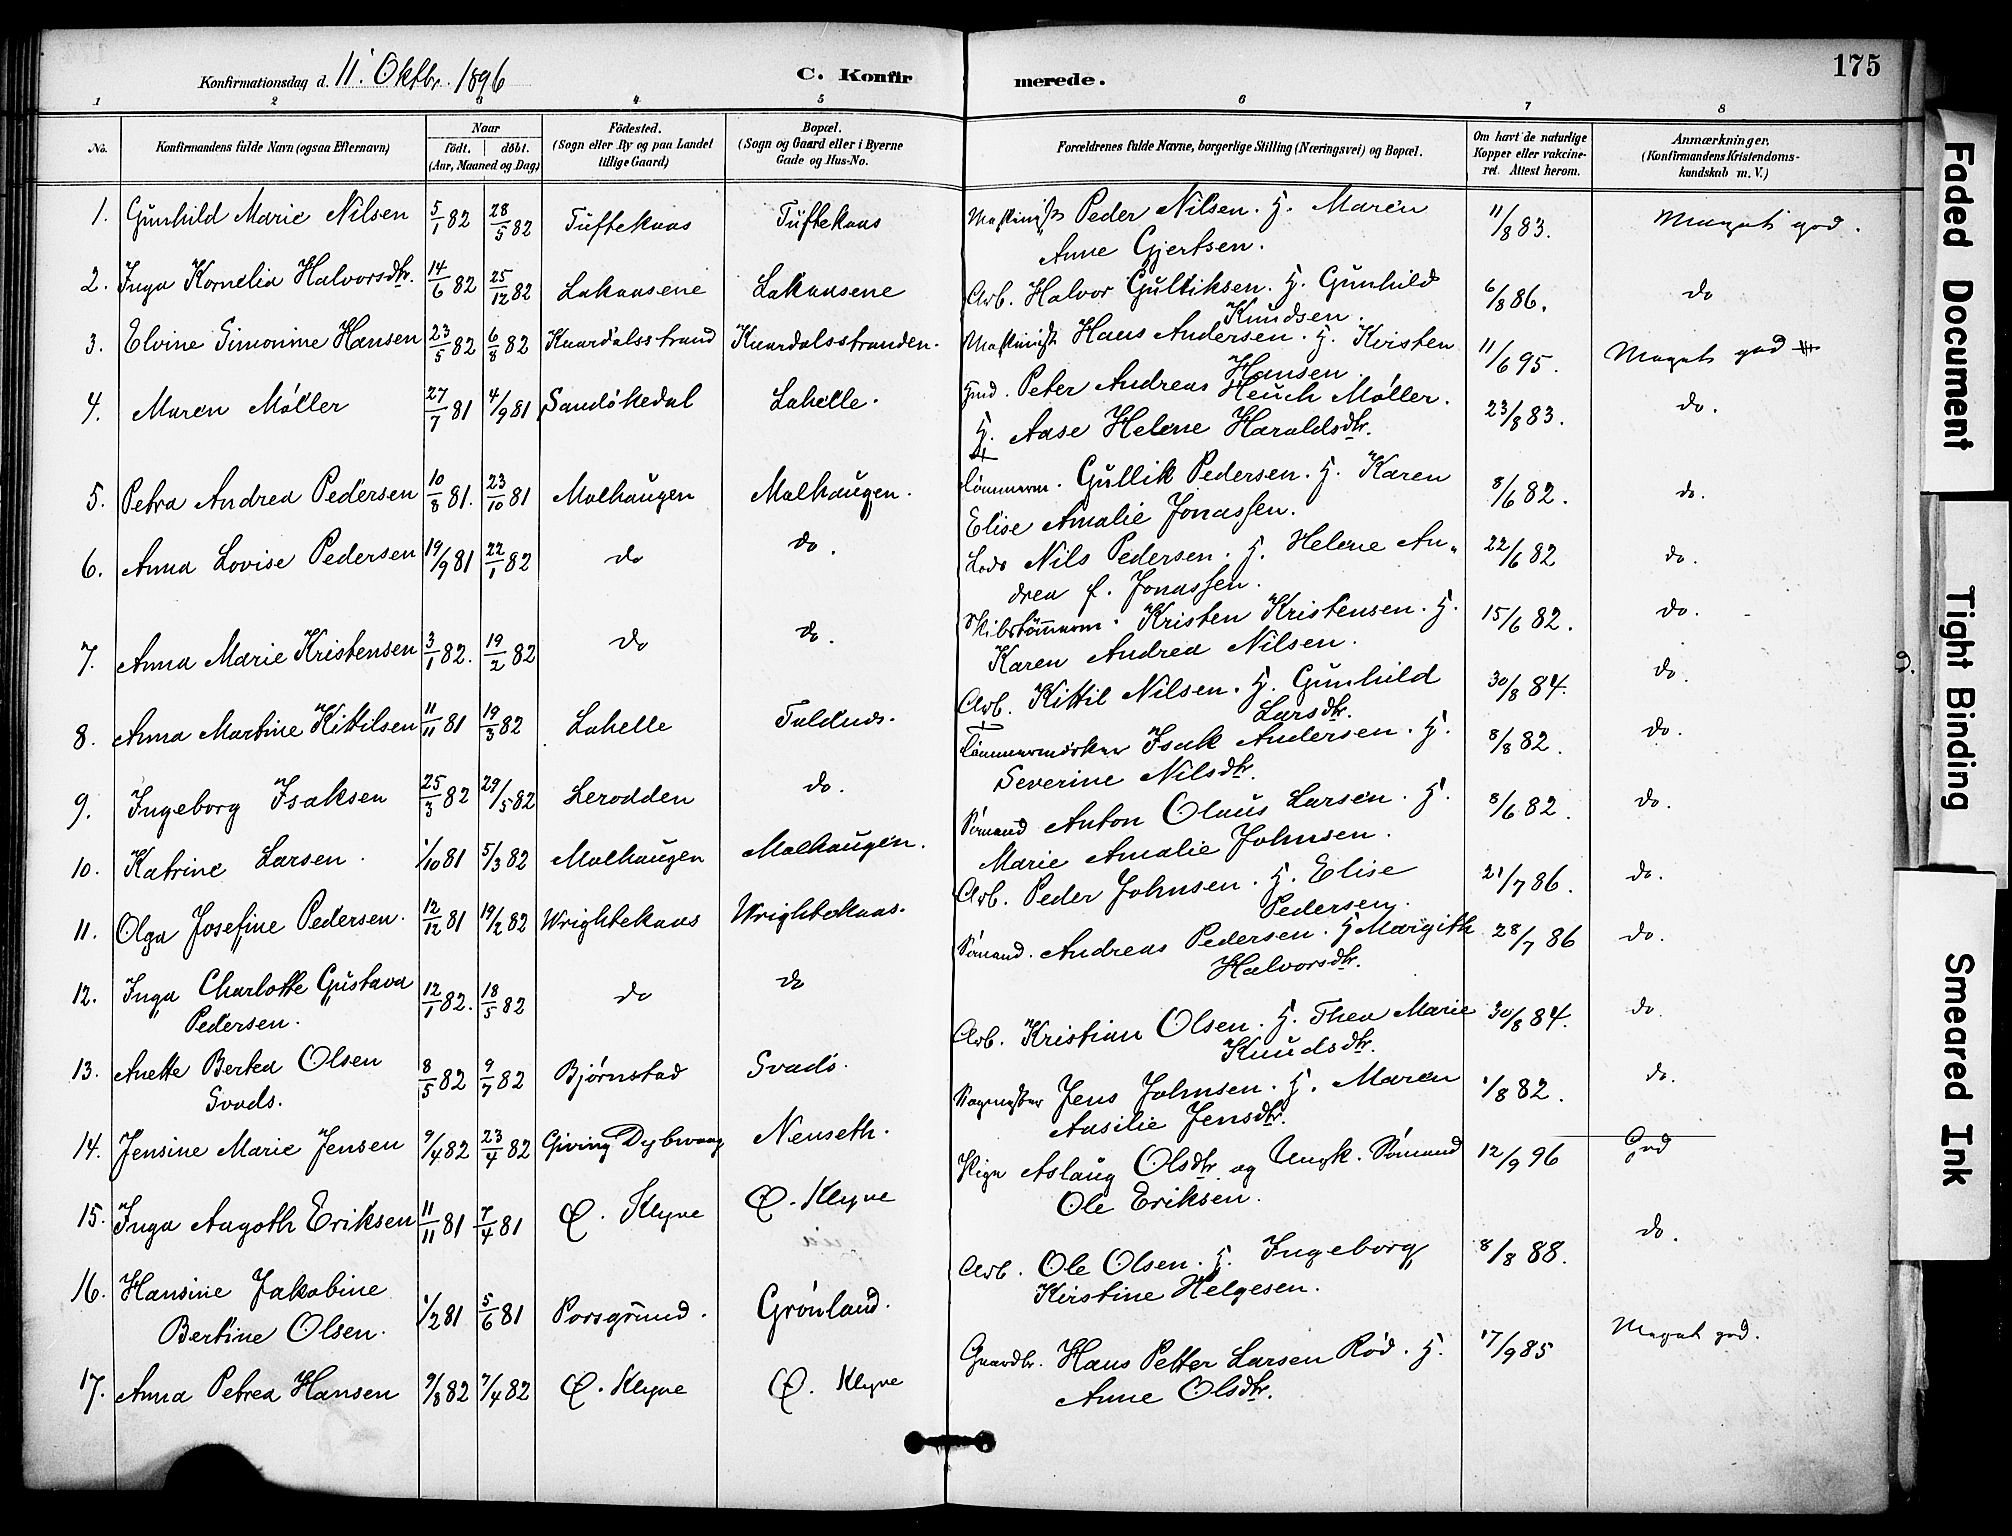 Konfirmationsdag d. 11' Oktbr. 1896
C. Konfir merede.
175
1 2 3 4 5 6 7 8
No.
Konfirmandens fulde Navn (ogsaa Efternavn)
Naar
født. | døbt.
(Aar, Maaned og Dag)
Fødested.
(Sogn eller By og paa Landet
tillige Gaard)
Bopæl.
(Sogn og Gaard eller i Byerne
Gade og Hus-No.
Forældrenes fulde Navne, borgerlige Stilling (Næringsvei) og Bopæl.
Om havt de naturlige
Kopper eller vakcine-
ret. Attest herom.
Anmærkninger,
(Konfirmandens Kristendoms-
kundskab m. V.)
1. Gunhild Marie Nilsen 5/1 82 28/5 82 Tuftekaas Tuftekaas Maskinist Peder Nilsen. H. Maren 11/8 83. Meget god.
Anne Gjertsen.
2. Inga Kornelia Halvorsdtr. 14/6 82 25/12 82 Lakaasene Lakaasene Arb. Halvor Gulliksen. H. Gunhild 6/8 86. do
Knudsen.
3. Elvine Simonine Hansen 23/5 82 6/8 82 Knardalsstrand Knardalsstranden. Maskinist Hans Andersen. H. Kirsten 11/6 95. Meget god
Hansen.
4. Maren Møller 27/7 81 4/9 81 Sandøkedal Lahelle. Hmd. Peter Andreas Heuch Møller. 23/8 83. do.
H. Aase Helene Haraldsdtr.
5. Petra Andrea Pedersen 10/8 81. 23/10 81 Malhaugen Malhaugen. Tømmerm. Gullik Pedersen. H. Karen 8/6 82. do.
Elise Amalie Jonassen.
6. Anna Lovise Pedersen 19/9 81 22/1 82 do do. Lods Nils Pedersen. H. Helene An- 22/6 82 do.
drea f. Jonassen.
7. Anna Marie Kristensen 3/1 82. 19/2 82 do do. Skibstømmerm. Kristen Kristensen. H. 15/6 82. do.
Karen Andrea Nilsen.
8. Anna Martine Kittilsen 11/11 81 19/3 82 Lahelle Faldnes. Arb. Kittil Nilsen. H. Gunhild 30/8 84. do.
Larsdtr.
9. Ingeborg Isaksen 25/3 82 29/5 82 Lerodden do. Tømmermester Isak Andersen. H. 8/8 82. do.
Severine Nilsdtr.
10. Katrine Larsen 1/10 81 5/3 82 Malhaugen Malhaugen. Sømand Anton Olaus Larsen. H. 8/6 82. do.
Marie Amalie Johnsen.
11. Olga Josefine Pedersen. 12/12 81 19/2 82 Wrightekaas Wrightekaas. Arb. Peder Johnsen. H. Elise 21/7 86. do.
Pedersen.
12. Inga Charlotte Gustava 12/1 82. 18/5 82 do do Sømand. Andreas Pedersen. H Margith 28/7 86 do.
Pedersen. Halvorsdtr.
13. Anette Bertea Olsen 8/5 82 9/7 82 Bjørnstad Svadø. Arb. Kristian Olsen. H. Thea Marie 30/8 84. do.
Svads. Knudsdtr.
14. Jensine Marie Jensen 9/4 82 23/4 82 Giving Dybvaag Nenseth. Sagmester Jens Johnsen. H. Maren 1/8 82. do.
Ausilie Jensdtr.
15. Inga Aagoth Eriksen 11/11 81 7/4 81 Ø. Klyve Ø. Klyve Pige Aslaug Olsdtr og Ungk. Sømand 12/9 96 God
Ole Eriksen.
16. Hansine Jakobine 1/2 81 5/6 81 Porsgrund. Grønland. Arb. Ole Olsen. H. Ingeborg 8/8 88. do.
Bertine Olsen. Kirstine Helgesen.
17. Anna Petrea Hansen 9/8 82 7/4 82 Ø. Klyve Ø. Klyve Gaardbr. Hans Petter Larsen Rød. H. 17/9 85 Meget god.
Anne Olsdtr.
Faded Document
Tight Binding
Smeared Ink